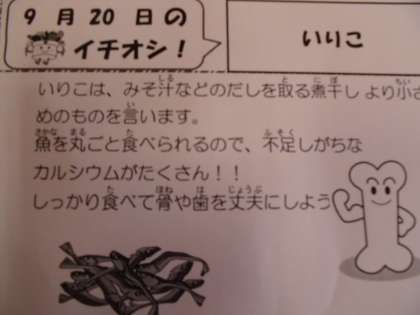 9月20日の
イチオシ！
いりこ
いりこは、みそ汁などのだしを取る煮干しより小さ
めのものを言います。
魚を丸ごと食べられるので、不足しがちな
カルシウムがたくさん！！
しっかり食べて骨や歯を丈夫にしよう